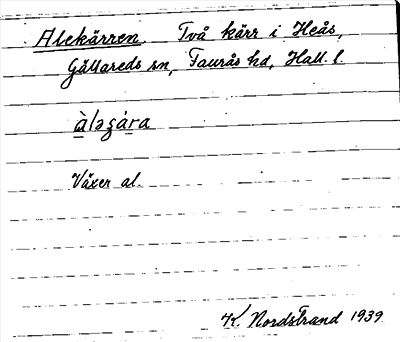 Alekärren. Två kärr i Heås,
Gällareds sn, Faurås hd, Hall. l.
àləʒàra
Växer al.
K. Nordstrand 1939